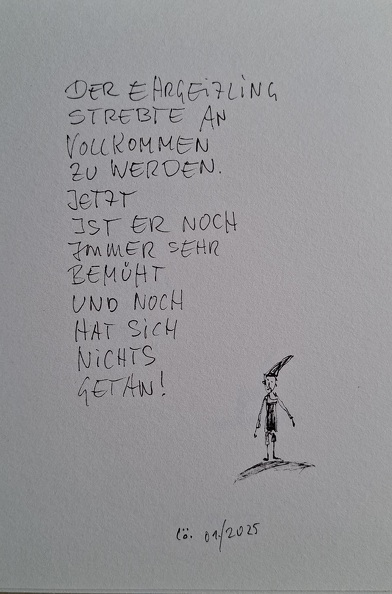 DER EHRGEIZLING
STREBTE AN
VOLLKOMMEN
ZU WERDEN.
JETZT
IST ER NOCH
IMMER SEHR
BEMÜHT
UND NOCH
HAT SICH
NICHTS
GETAN!
lö. 01/2025